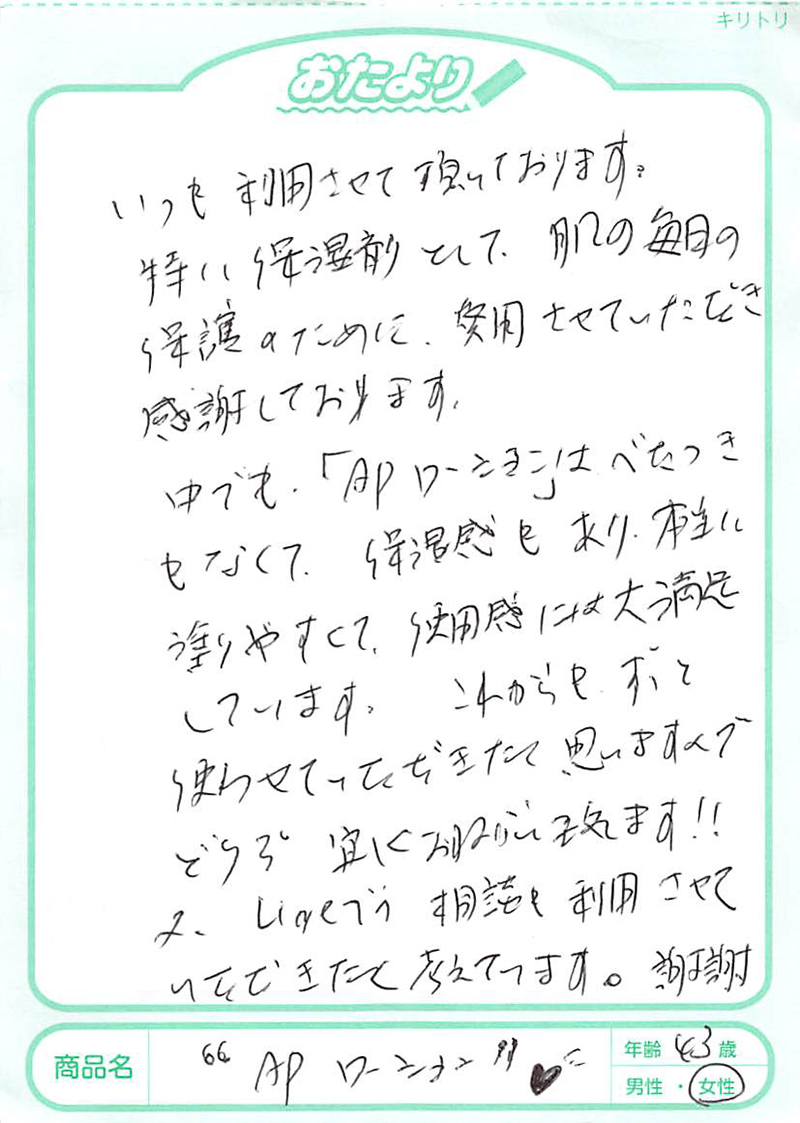 キリトリ
おたより
いつも 利用させて 頂いております。
特に 保湿剤 として、肌の毎日の
保護のために、愛用させていただき
感謝しております。
中でも、「APローション」は べたつき
もなくて、保湿感も あり、本当に
塗りやすくて、使用感には大満足
しています。 これからも ずっと
使わせていただきたく 思いますので
どうぞ 宜しくお願い致します!!
又、Lineでの 相談も 利用させて
いただきたく考えています。謝謝
商品名 “APローション”♥に
年齢 43 歳
男性 ・ 女性